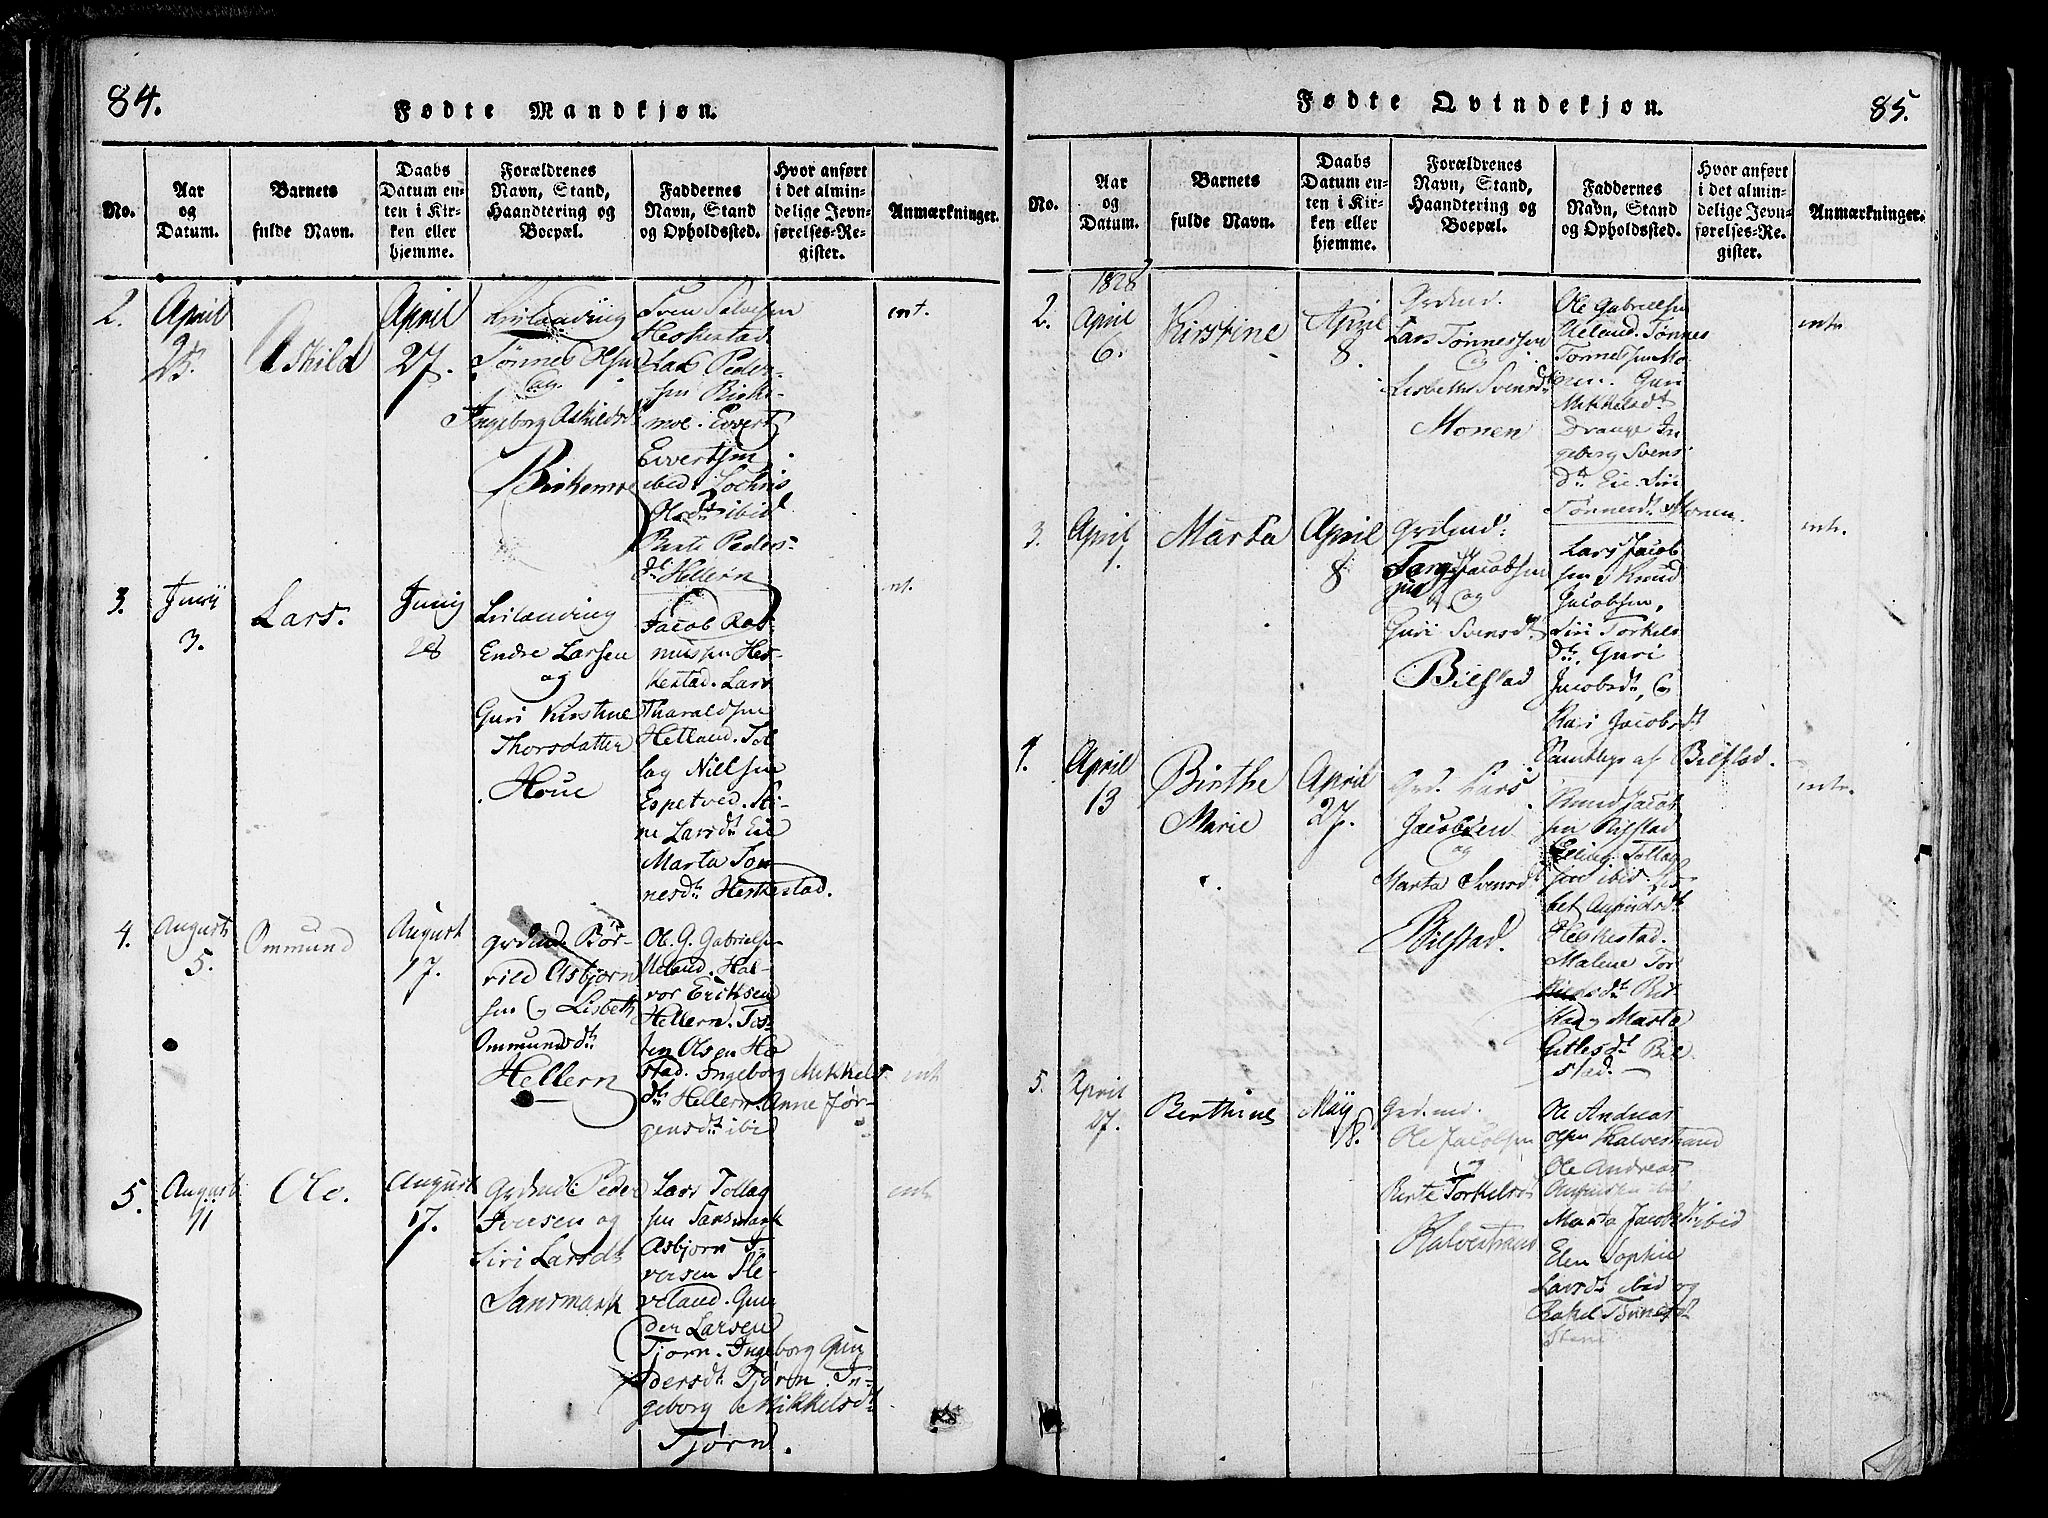 84.
Fødte Mandkjøn.
No.
Aar
og
Datum.
Barnets
fulde Navn.
Daabs
Datum en-
ten i Kir-
ken eller
hjemme.
Forældrenes
Navn, Stand,
Haandtering og
Boepæl.
Faddernes
Navn, Stand
og Opholdssted.
Hvor anført
i det almin-
delige Jevn-
førelses-Re-
gister.
Anmærkninger.
2.
April
25.
Askild
April
27.
Tønnes Olsen
og
Ingeborg Askildsd
Birkemoe
Sven Salvesen
Heskestad
Lars Peder-
sen Birke-
moe. Evvert
Evvertsen
ibid
Olsdt ibid
Berte Peders-
dt Hellern
int.
3.
Junij
3.
Lars.
Junij
28
Endre Larsen
og
Guri Kirstine
Thorsdatter
Houe
Jacob Ras-
musen Hes-
kestad. Lars
Tharaldsen
Hetland. Tol
lag Nielsen
Espetved. Si-
ne Larsdt Eie
Marta Ton
nesdt Heskestad.
nt.
4.
August
5.
Ommund
August
17.
Grdmd. Bør-
rild Asbjørn
sen og Lisbeth
Ommundsdt
Hellern
Ole G. Gabrielsen
Ueland. Hal-
vor Eriksen
Hellern. Tos-
ten Olsen He
stad. Ingeborg Mikkels.
dt Hellern. Anne Jør-
gensdt ibid
int.
5.
August
11
Ole.
August
17.
Grdmd: Peder
Iversen og
Siri Larsdt
Sansmark
Lars Tollag
sen Sansmark
Asbjørn I-
versen Sle-
veland. Gun
der Larsen
Tjørn. Ingeborg Gun
dersdt Tjørn. In-
geborg Mikkelsdt
Tjørn.
intr.
85.
Fødte Qvindekjøn.
No.
Aar
og
Datum.
Barnets
fulde Navn.
Daabs
Datum en-
ten i Kir-
ken eller
hjemme.
Forældrenes
Navn, Stand,
Haandtering og
Boepæl.
Faddernes
Navn, Stand
og Opholdssted.
Hvor anført
i det almin-
delige Jevn-
førelses-Re-
gister.
Anmærkninger.
2.
1828
April
6.
Kirstine
April
8.
Grdmd.
Lars Tønnessen
og
Lisbeth Svensdt
Monen
Ole Gabrielsen
Ueland. Tønnes
Tønnessen Mo-
nen. Guri
Mikkelsdt
Drange In
geborg Svens
dt Eie Siri
Tønnesdt Monen.
intr
3.
April
1.
Marta
April
8
Grdmd:
Jacobsen
og
Guri Svensdt
Bilstad
Lars Jacob
sen, Knud
Jacobsen,
Siri Torkels
dt. Guri
Jacobsdt, og
Kari Jacobsdt
Samtlige af Bilstad.
intr.
4.
April
13
Birthe
Marie
April
27.
Grd. Lars
Jacobsen
og
Marta Svensdt
Bilstad.
Knud Jacob
sen Bilstad
Tollag
sen ibid. Lis
bet
Heskestad.
Malene Tor
Bil
stad og Marta
Gitlesdt Bil
stad.
intr.
5.
April
27.
Berthine
Maÿ
18.
Grdmd.
Ole Jacobsen
og
Berte Torkelsdt
Kalvestrand
Ole Andreas
Olsen Kalvestrand
Ole Andreas
ibid
Marta Jacobsdt ibid
Elen Sophie
Larsdt ibid og
Rakel Tønnesdt